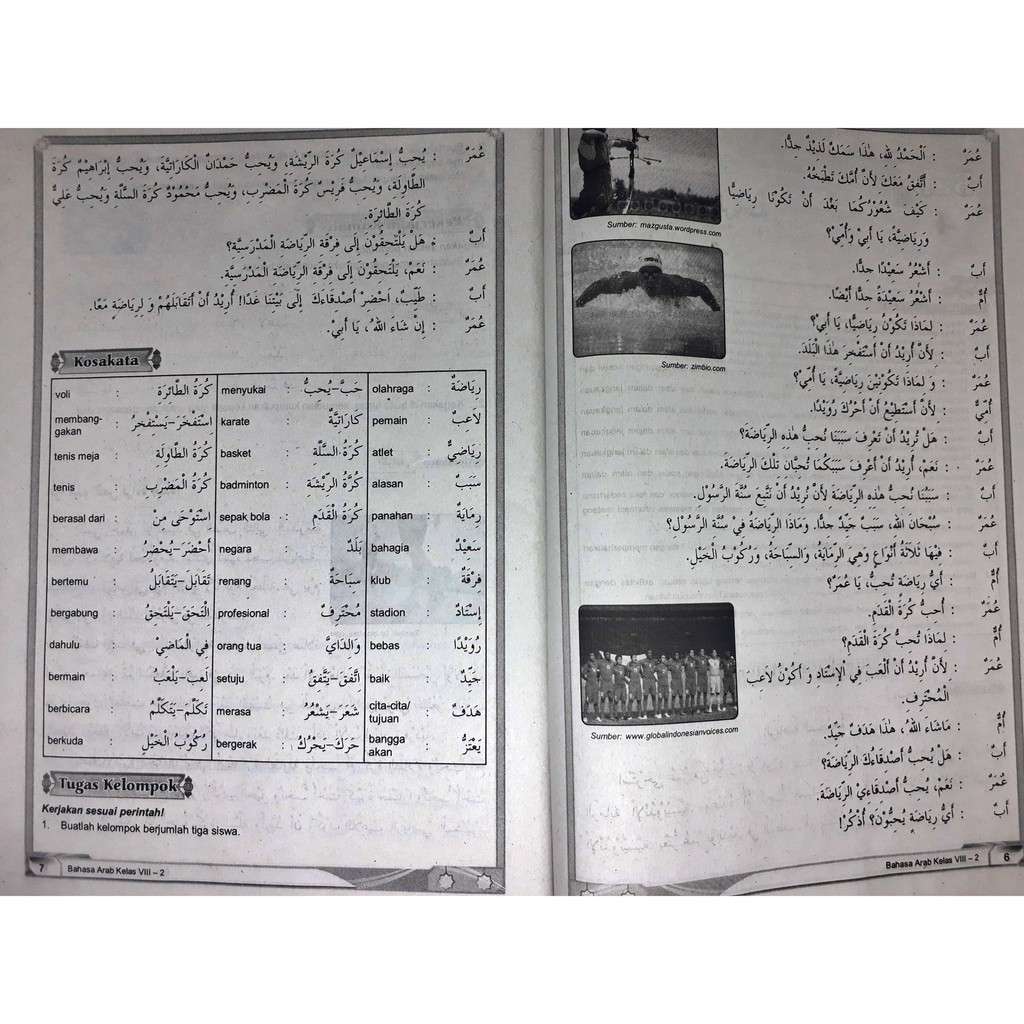 عُمَرُ : اَلْحَمْدُ لله، هٰذَا سَمَكٌ لَذِيْذٌ جِدًّا.
أَبٌ : أَتَّفِقُ مَعَكَ لأَنَّ أُمَّكَ تَطْبَخُهُ.
عُمَرُ : كَيْفَ شُعُوْرُكُمَا بَعْدَ أَنْ تَكُوْنَا رِيَاضِيًّا
وَرِيَاضِيَّةً، يَا أَبِيْ وَأُمِّيْ؟
أَبٌ : أَشْعُرُ سَعِيْدًا جِدًّا.
أُمٌّ : أَشْعُرُ سَعِيْدَةً جِدًّا أَيْضًا.
عُمَرُ : لِمَاذَا تَكُوْنُ رِيَاضِيًّا، يَا أَبِيْ؟
أَبٌ : لأَنْ أُرِيْدُ أَنْ أَسْتَفْخِرَ هٰذَا الْبَلَدَ.
عُمَرُ : وَ لِمَاذَا تَكُوْنِيْنَ رِيَاضِيَّةً، يَا أُمِّيْ؟
أُمِّيْ : لأَنْ أَسْتَطِيْعُ أَنْ أَحْرُكَ رُوَيْدًا.
أَبٌ : هَلْ تُرِيْدُ أَنْ تَعْرِفَ سَبَبَنَا نُحِبُّ هٰذِهِ الرِّيَاضَةَ؟
عُمَرُ : نَعَمْ، أُرِيْدُ أَنْ أَعْرِفَ سَبَبَكُمَا تُحِبَّانِ تِلْكَ الرِّيَاضَةَ.
أَبٌ : سَبَبُنَا نُحِبُّ هٰذِهِ الرِّيَاضَةَ لأَنْ نُرِيْدُ أَنْ نَتَّبِعَ سُنَّةَ الرَّسُوْلِ.
عُمَرُ : سُبْحَانَ الله، سَبَبٌ جَيِّدٌ جِدًّا. وَمَاذَا الرِّيَاضَةُ فِيْ سُنَّةِ الرَّسُوْلِ؟
أَبٌ : فِيْهَا ثَلَاثَةُ أَنْوَاعٍ وَهِيَ الرِّمَايَةُ، وَالسِّبَاحَةُ، وَرُكُوْبُ الْخَيْلِ.
أُمٌّ : أَيُّ رِيَاضَةٍ تُحِبُّ، يَا عُمَرُ؟
عُمَرُ : أُحِبُّ كُرَةَ الْقَدَمِ.
أُمٌّ : لِمَاذَا تُحِبُّ كُرَةَ الْقَدَمِ؟
عُمَرُ : لأَنْ أُرِيْدُ أَنْ أَلْعَبَ فِي الْإِسْتَادِ وَ أَكُوْنُ لَاعِبَ
الْمُحْتَرِفِ.
أُمٌّ : مَاشَاءَ اللهُ، هٰذَا هَدَفٌ جَيِّدٌ.
أَبٌ : هَلْ يُحِبُّ أَصْدِقَاءُكَ الرِّيَاضَةَ؟
عُمَرُ : نَعَمْ، يُحِبُّ أَصْدِقَاءِيْ الرِّيَاضَةَ.
أَبٌ : أَيُّ رِيَاضَةٍ يُحِبُّوْنَ؟ اُذْكُرْ!
Sumber: mazgusta.wordpress.com
Sumber: zimbio.com
Sumber: www.globalindonesianvoices.com
Bahasa Arab Kelas VIII – 2
6
عُمَرُ : يُحِبُّ إِسْمَاعِيْلُ كُرَةَ الرِّيْشَةِ، وَيُحِبُّ حَمْدَانُ الْكَارَاتِيَّةَ، وَيُحِبُّ إِبْرَاهِيْمُ كُرَةَ
الطَّاوِلَةِ، وَيُحِبُّ فَرِيْسُ كُرَةَ الْمَضْرِبِ، وَيُحِبُّ مَحْمُوْدٌ كُرَةَ السَّلَّةِ وَيُحِبُّ عَلِيٌّ
كُرَةَ الطَّائِرَةِ.
أَبٌ : هَلْ يَلْتَحِقُوْنَ إِلَى فِرْقَةِ الرِّيَاضَةِ الْمَدْرَسِيَّةِ؟
عُمَرُ : نَعَمْ، يَلْتَحِقُوْنَ إِلَى فِرْقَةِ الرِّيَاضَةِ الْمَدْرَسِيَّةِ.
أَبٌ : طَيِّبٌ، اَحْضِرْ أَصْدِقَاءَكَ إِلَى بَيْتِنَا غَدًا! أُرِيْدُ أَنْ أَتَقَابَلَهُمْ وَ لِرِيَاضَةٍ مَعًا.
عُمَرُ : إِنْ شَاءَ اللهُ، يَا أَبِيْ.
Kosakata
رِيَاضَةٌ : olahraga حَبَّ–يُحِبُّ : menyukai كُرَةُ الطَّائِرَةِ : voli
لَاعِبٌ : pemain كَارَاتِيَّةٌ : karate اِسْتَفْخَرَ–يَسْتَفْخِرُ : membang-
gakan
رِيَاضِيٌّ : atlet كُرَةُ السَّلَّةِ : basket كُرَةُ الطَّاوِلَةِ : tenis meja
سَبَبٌ : alasan كُرَةُ الرِّيْشَةِ : badminton كُرَةُ الْمَضْرِبِ : tenis
رِمَايَةٌ : panahan كُرَةُ الْقَدَمِ : sepak bola اِسْتَوْحَى مِنْ : berasal dari
سَعِيْدٌ : bahagia بَلَدٌ : negara أَحْضَرَ–يُحْضِرُ : membawa
فِرْقَةٌ : klub سِبَاحَةٌ : renang تَقَابَلَ–يَتَقَابَلُ : bertemu
إِسْتَادٌ : stadion مُحْتَرِفٌ : profesional اِلْتَحَقَ–يَلْتَحِقُ : bergabung
رُوَيْدًا : bebas وَالِدَايَّ : orang tua فِي الْمَاضِيْ : dahulu
جَيِّدٌ : baik اِتَّفَقَ–يَتَّفِقُ : setuju لَعِبَ–يَلْعَبُ : bermain
هَدَفٌ : cita-cita/
tujuan شَعَرَ–يَشْعُرُ : merasa تَكَلَّمَ–يَتَكَلَّمُ : berbicara
يَعْتَزُّ : bangga
akan حَرَكَ–يَحْرُكُ : bergerak رُكُوْبُ الْخَيْلِ : berkuda
Tugas Kelompok
Kerjakan sesuai perintah!
1. Buatlah kelompok berjumlah tiga siswa.
7
Bahasa Arab Kelas VIII – 2